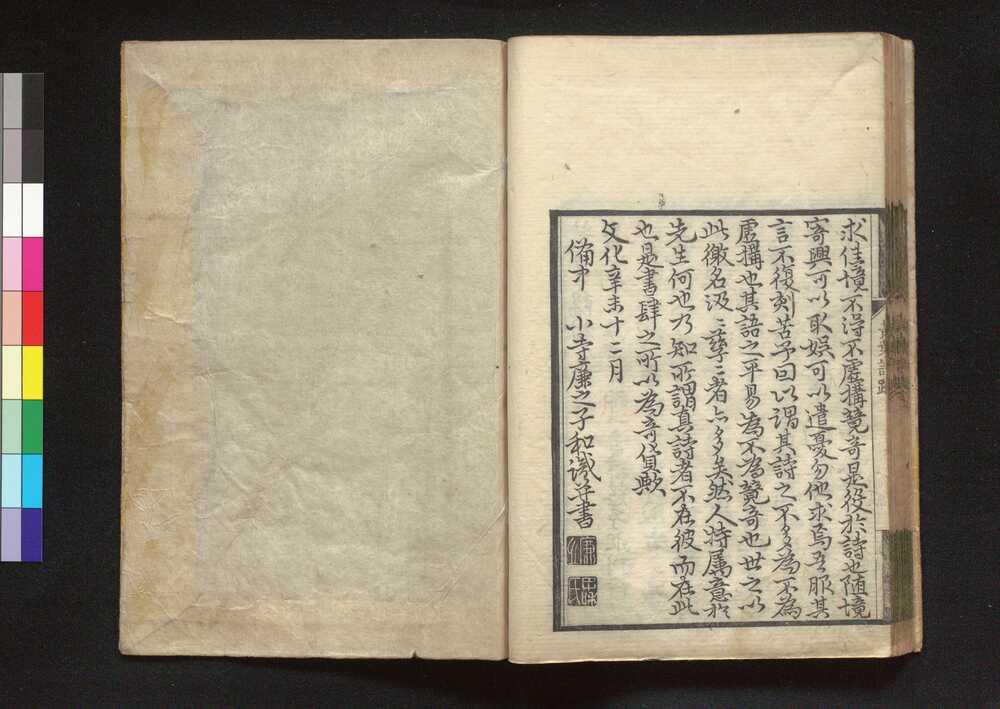 求佳境不得不虚搆競奇是役於詩也随境
寄興可以取娯可以遣憂勿他求焉吾服其
言不復刻苦予曰以謂其詩之不多為不為
虚搆也其語之平易為不為競奇也世之以
此徼名汲〻孳〻者亦多矣然人特属意於
先生何也乃知所謂真詩者不在彼而在此
也是書肆之所以為奇貨歟
文化辛未十二月
備中 小寺廉之子和識并書
廉之